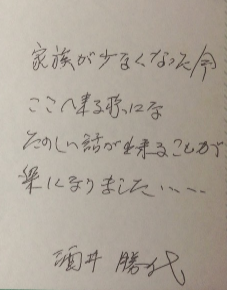 家族が少なくなった今
ここへ来る時にな
たのしい話が出来ることが
楽になりました、、、、
酒井 勝代